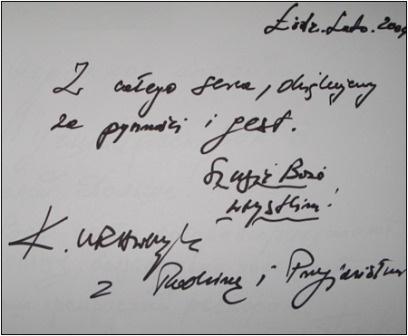 Łódź. Lato. 2004
Z całego serca, dziękujemy
za pomoc i gest.
Szczęść Boże
wszystkim!
K.
z Rodziną i Przyjaciółmi